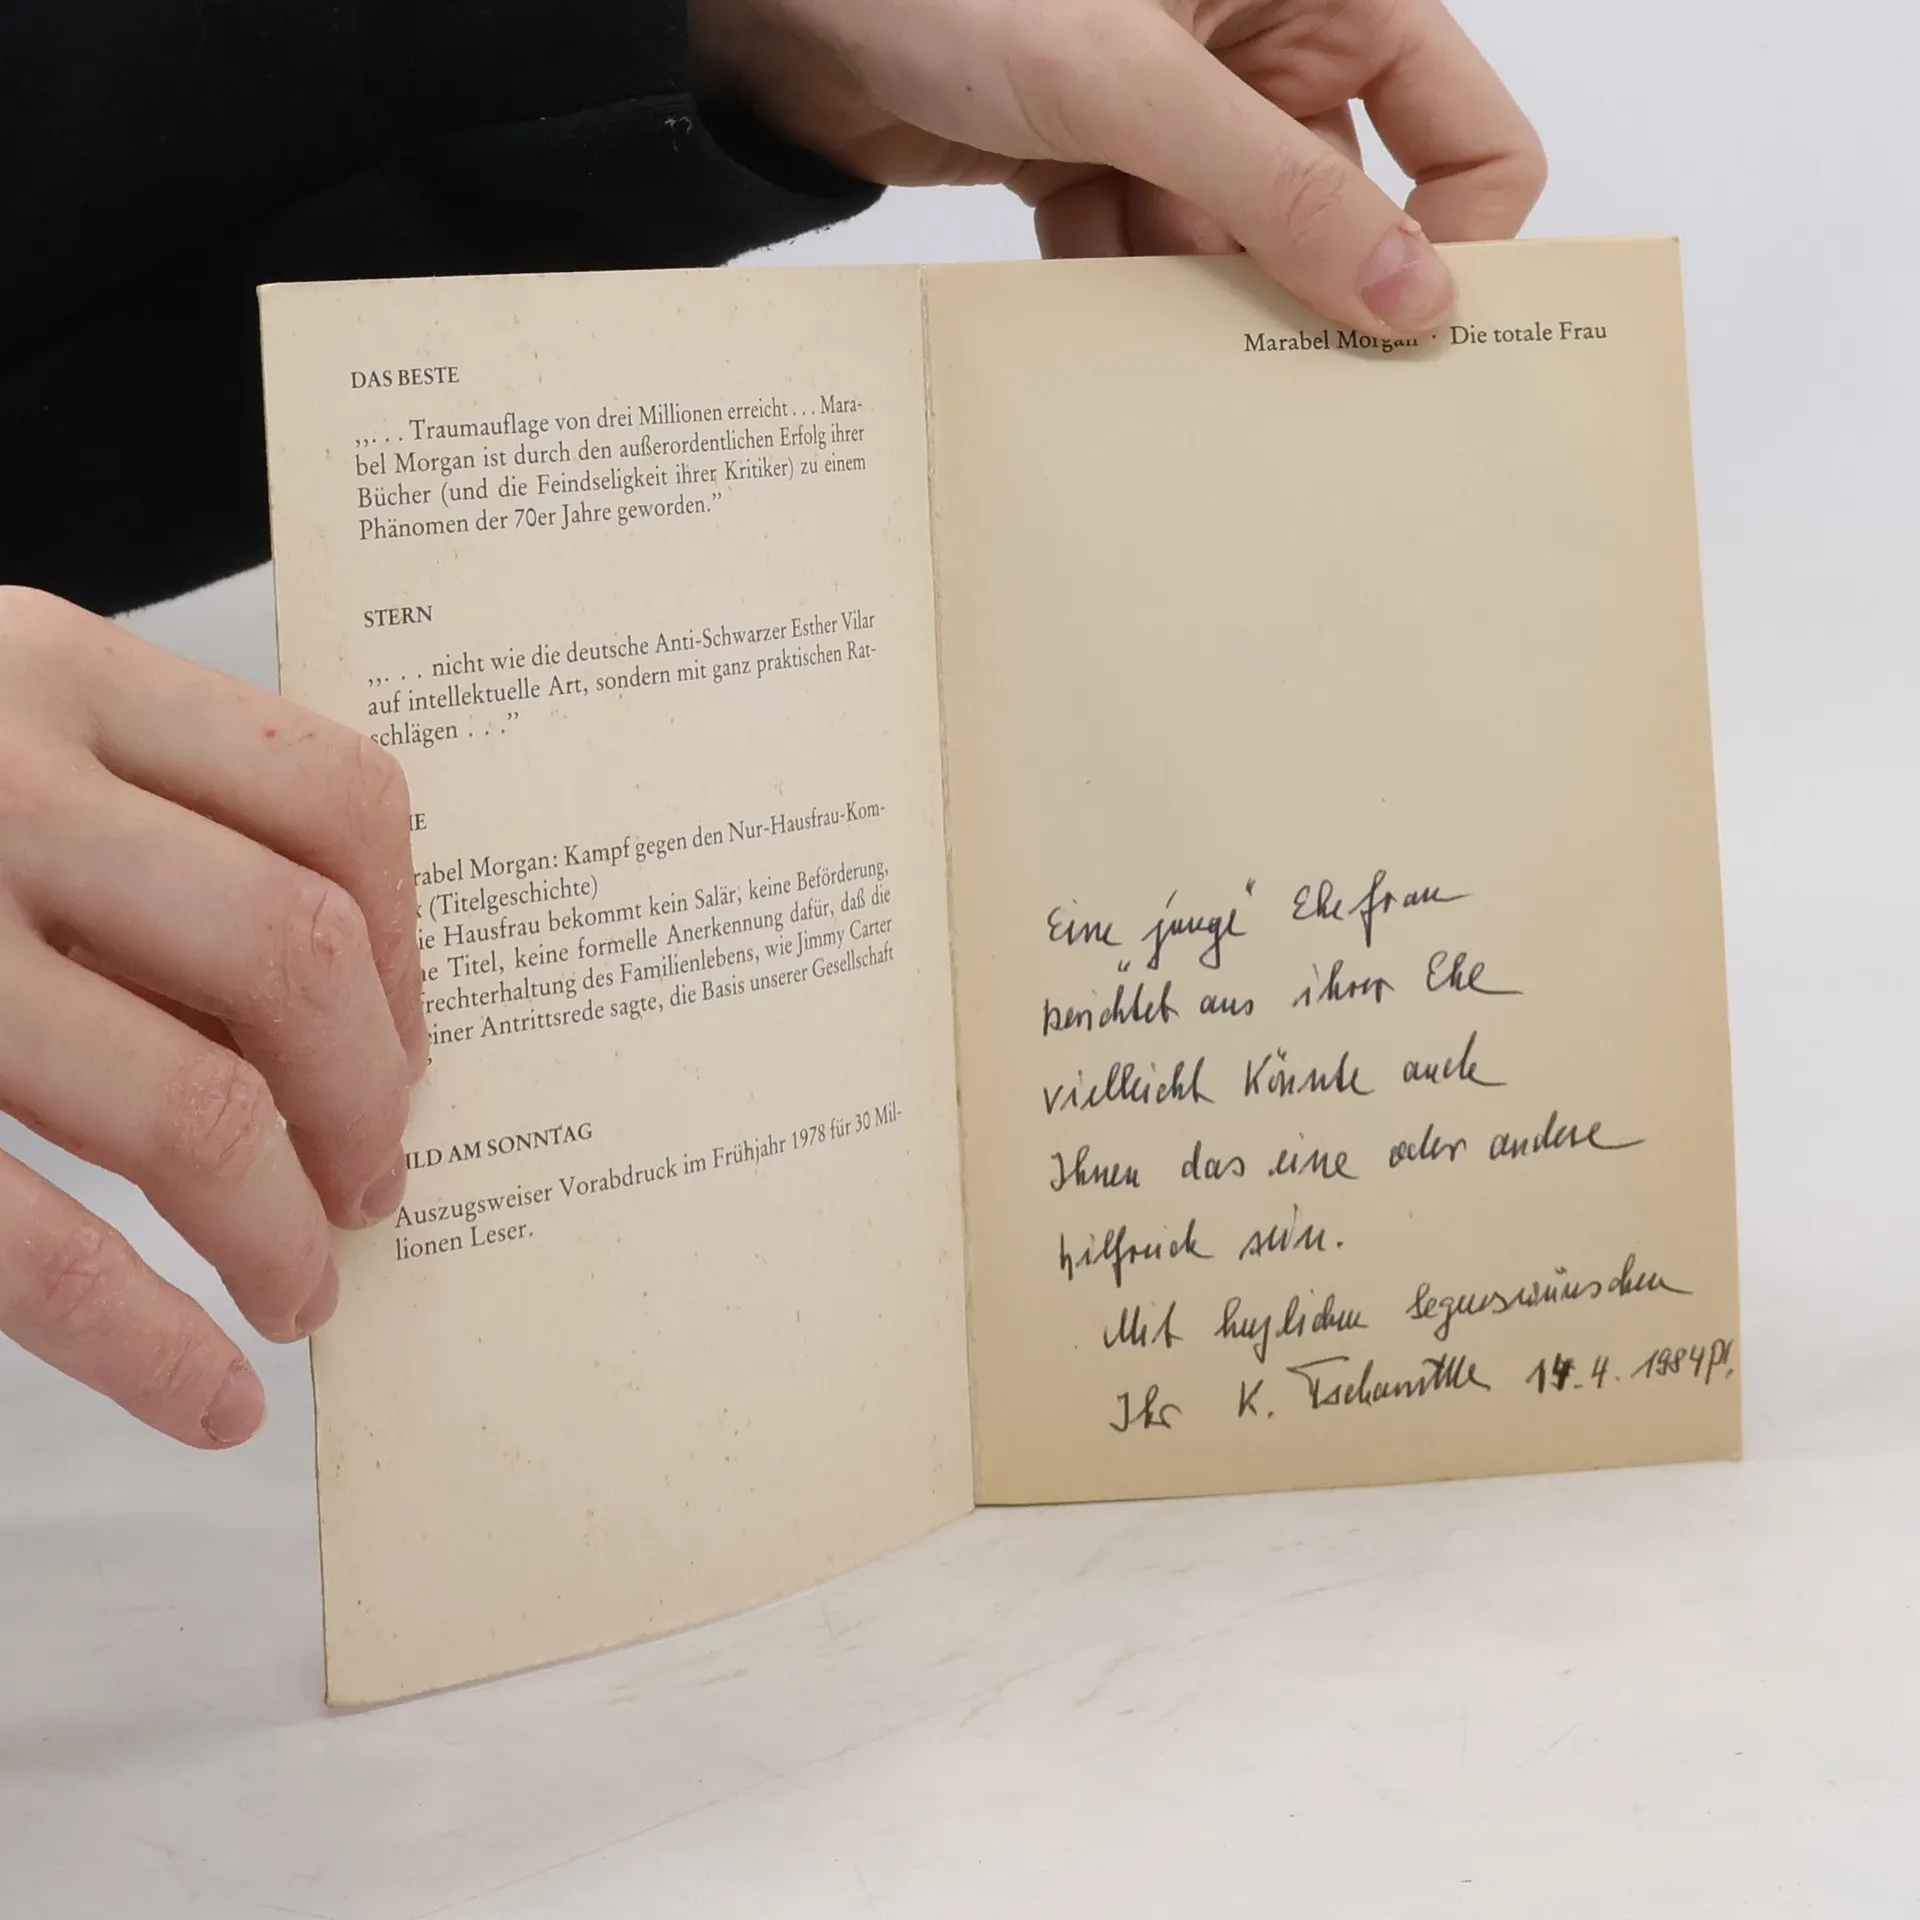 DAS BESTE
„. . . Traumauflage von drei Millionen erreicht . . . Mara-
bel Morgan ist durch den außerordentlichen Erfolg ihrer
Bücher (und die Feindseligkeit ihrer Kritiker) zu einem
Phänomen der 70er Jahre geworden.”
STERN
„. . . nicht wie die deutsche Anti-Schwarzer Esther Vilar
auf intellektuelle Art, sondern mit ganz praktischen Rat-
schlägen . . .”
rabel Morgan: Kampf gegen den Nur-Hausfrau-Kom-
(Titelgeschichte)
ie Hausfrau bekommt kein Salär, keine Beförderung,
ne Titel, keine formelle Anerkennung dafür, daß die
frechterhaltung des Familienlebens, wie Jimmy Carter
einer Antrittsrede sagte, die Basis unserer Gesellschaft
ILD AM SONNTAG
Auszugsweiser Vorabdruck im Frühjahr 1978 für 30 Mil-
lionen Leser.
Marabel Morgan · Die totale Frau
Eine „junge“ Ehefrau
berichtet aus ihrer Ehe
vielleicht könnte auch
Ihnen das eine oder andere
hilfreich sein.
Mit herzlichen Segenswünschen
Ihr K. 14.4.1984